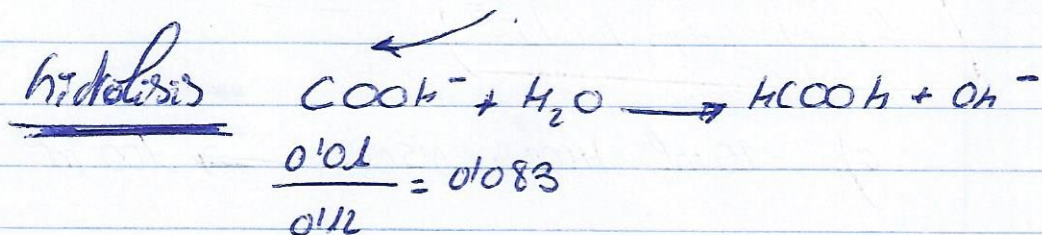 hidrolisis COOH⁻ + H₂O → HCOOH + OH⁻
0'01
—— = 0'083
0'12